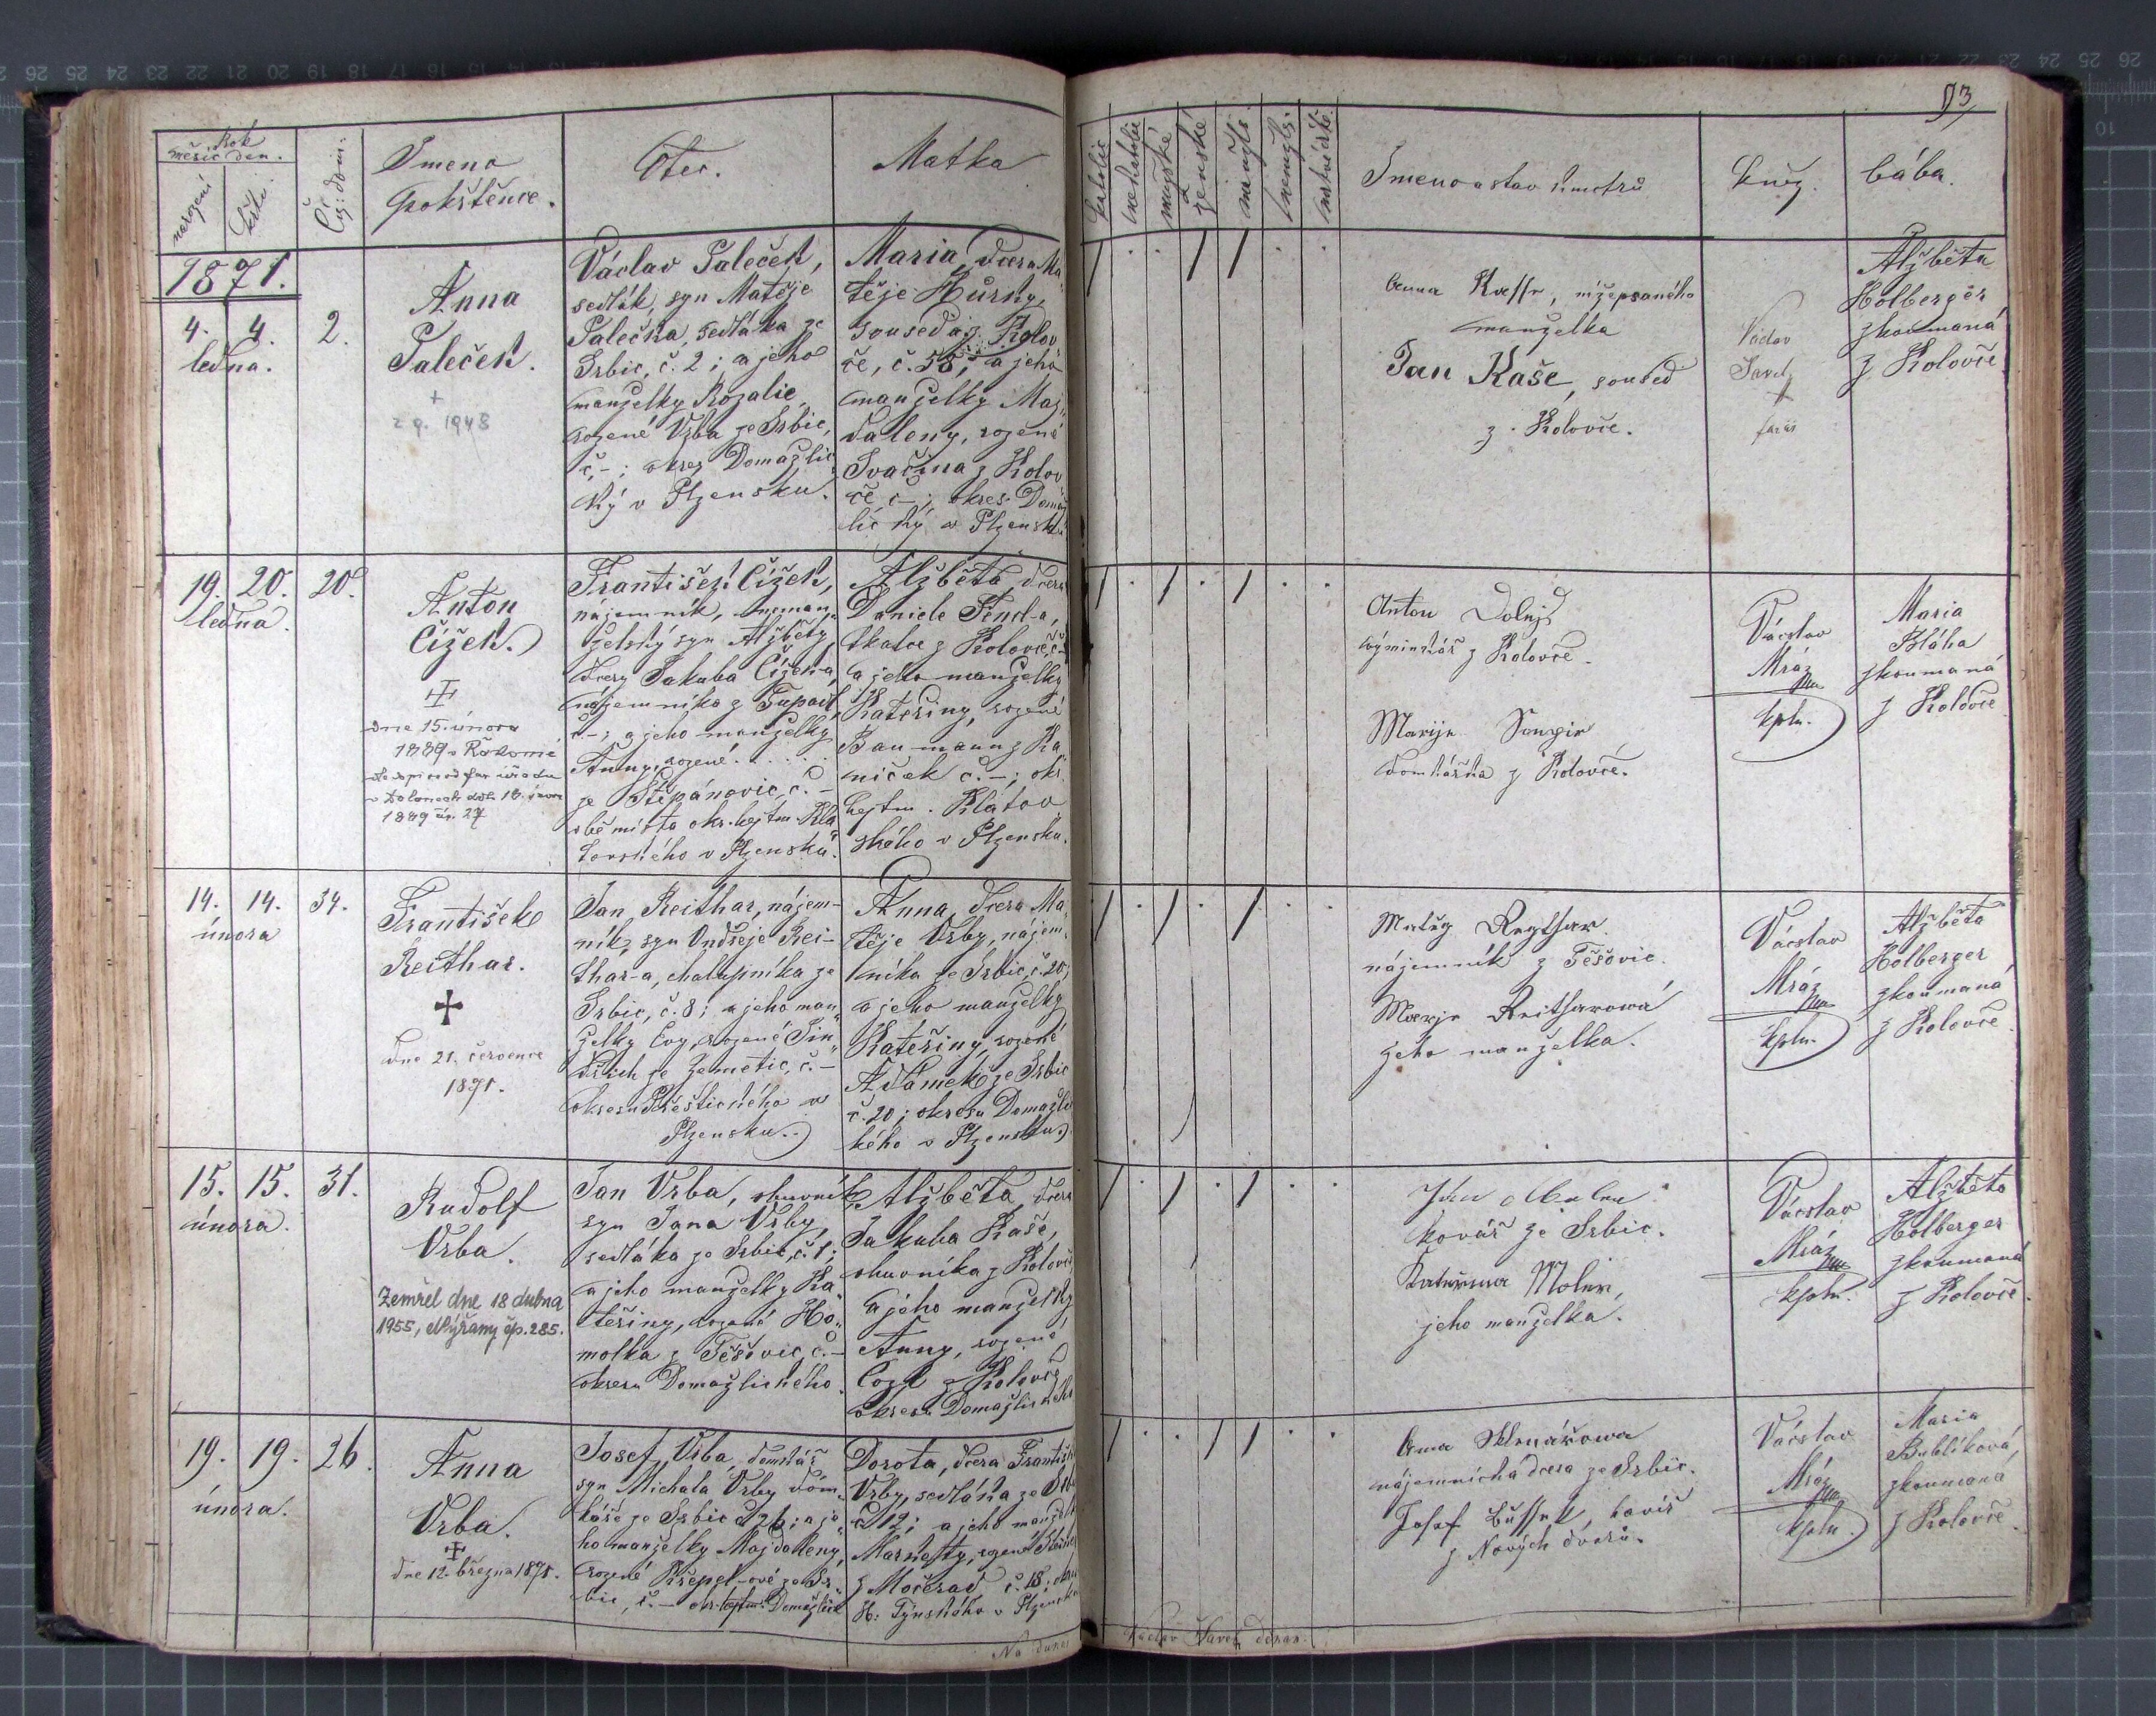 93
Rok
měsíc den.
narození
křtu
Čís: dom:
Jmeno
pokřtěnce.
Otec.
Matka
katolic
nekatolic
mužské
ženské
manžels.
nemanžls.
Jmeno a stav kmotrů
kněz.
bába.
1871.
4. 4. 2.
ledna.
Anna
Paleček.
+
1948
Václav Paleček,
sedlák, syn Matěje
Palečka, sedláka ze
Srbic, č. 2; a jeho
manželky Rozalie,
rozené Vrba ze Srbic,
č.–; okres Domažlic
ký v Plzensku.
Maria, dcera Ma
těje Hůrky,
souseda z Kolov
če, č. 58; a jeho
manželky Mag„
daleny, rozené
Svačina z Kolov
če č–; okres Domaž
lický v Plzensku
Anna nížepsaného
manželka
Jan Kaše, soused
z Kolovče.
Václav
farář
Alžběta
Holberger
zkoumaná
z Kolovče
19. 20. 20.
ledna.
Anton
Čížek.
dne 15. února
1889
1889 čís. 27
František Čížek,
nájemník, neman„
želský syn Alžběty,
dcery Jakuba Čížka,
nájemníka z Tupadl,
č–; a jeho manželky
Anny, rozené . . . . .
ze Štěpánovic, č. –
obě místa okr. hejtm. Kla
tovského v Plzensku.
Alžběta dcera
Daniele
tkalce z Kolovče, č–
a jeho manželky
Kateřiny, rozené
Baumann z Ka
níček č. –; okr.
hejtm. Klatov
ského v Plzensku.
Anton Dolejš
výminkář z Kolovče.
Marije
domkářka z Kolovče.
Václav
Mráz
kpln.
Maria
Bláha
zkoumaná
z Kolovče
14. 14. 34.
února
František
Reithar.
dne 21. července
1871.
Jan Reithar, nájem-
ník, syn Ondřeje Rei-
thar-a, chalupníka ze
Srbic, č. 8; a jeho man„
želky Evy, rozené Jin„
dřich ze Zemětic, č. –
okresu Přeštického v
Plzensku.
Anna dcera Ma„
těje Vrby, nájem„
níka ze Srbic, č. 20;
a jeho manželky
Kateřiny, rozené
Adámek ze Srbic
č. 20; okresu Domažlic
kého v Plzensku.
Matěj Reythar
nájemník z Těšovic.
Marje Reitharowá
jeho manželka.
Václav
Mráz
kpln.
Alžběta
Holberger
zkoumaná
z Kolovče
15. 15. 31.
února.
Rudolf
Vrba.
Zemřel dne 18 dubna
1955, Nýřany čp. 285.
Jan Vrba, obuvník
syn Jana Vrby,
sedláka ze Srbic, č. 1;
a jeho manželky Ka„
teřiny, rozené Ho„
molka z Těšovic, č. –
okresu Domažlického.
Alžběta dcera
Jakuba Kaše,
obuvníka z Kolovče
a jeho manželky
Anny, rozené
z Kolovče
okresu Domažlického
Jan
kovář ze Srbic.
Kateřina
jeho manželka.
Václav
Mráz
kpln.
Alžběta
Holberger
zkoumaná
z Kolovče.
19. 19. 26.
února.
Anna
Vrba.
dne 12. března 1871.
Josef Vrba, domkář
syn Michala Vrby dom„
káře ze Srbic č. 26; a je„
ho manželky Magdaleny,
rozené ze Sr„
bic, č. – okr. hejtm. Domažlice
Dorota, dcera Františka
Vrby, sedláka ze Srbic
č. 12; a jeho manželky
z Močerad č. 18; okresu
H: Týnského v Plzensku
Anna
nájemnická dcera ze Srbic.
Josef
z Nových dvorů.
Václav
Mráz
kpln.
Maria
Bublíková,
zkoumaná
z Kolovče.
Václav děkan.